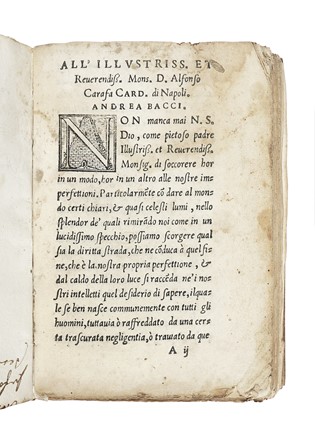 ALL' ILLVSTRISS. ET
Reuerendiss. Mons. D. Alfonso
Carafa CARD. di Napoli.
ANDREA BACCI.
NON manca mai N. S.
Dio, come pietoso padre
Illustriss. et Reuerendiss.
Monsig. di soccorere hor
in un modo, hor in un altro alle nostre im
perfettioni. Particolarmēte cō dare al mon
do certi chiari, & quasi celesti lumi, nello
splendor de' quali rimirādo noi come in un
lucidissimo specchio, possiamo scorgere qual
sia la diritta strada, che ne cōduca à quel fi=
ne, che è la nostra propria perfettione, &
dal caldo della loro luce si accēda ne'i no=
stri intelletti quel desiderio di sapere, ilqua=
le se ben nasce communemente con tutti gli
huomini, tuttauia ò raffreddato da una cer=
ta trascurata negligentia, ò trauiato da que
A ij